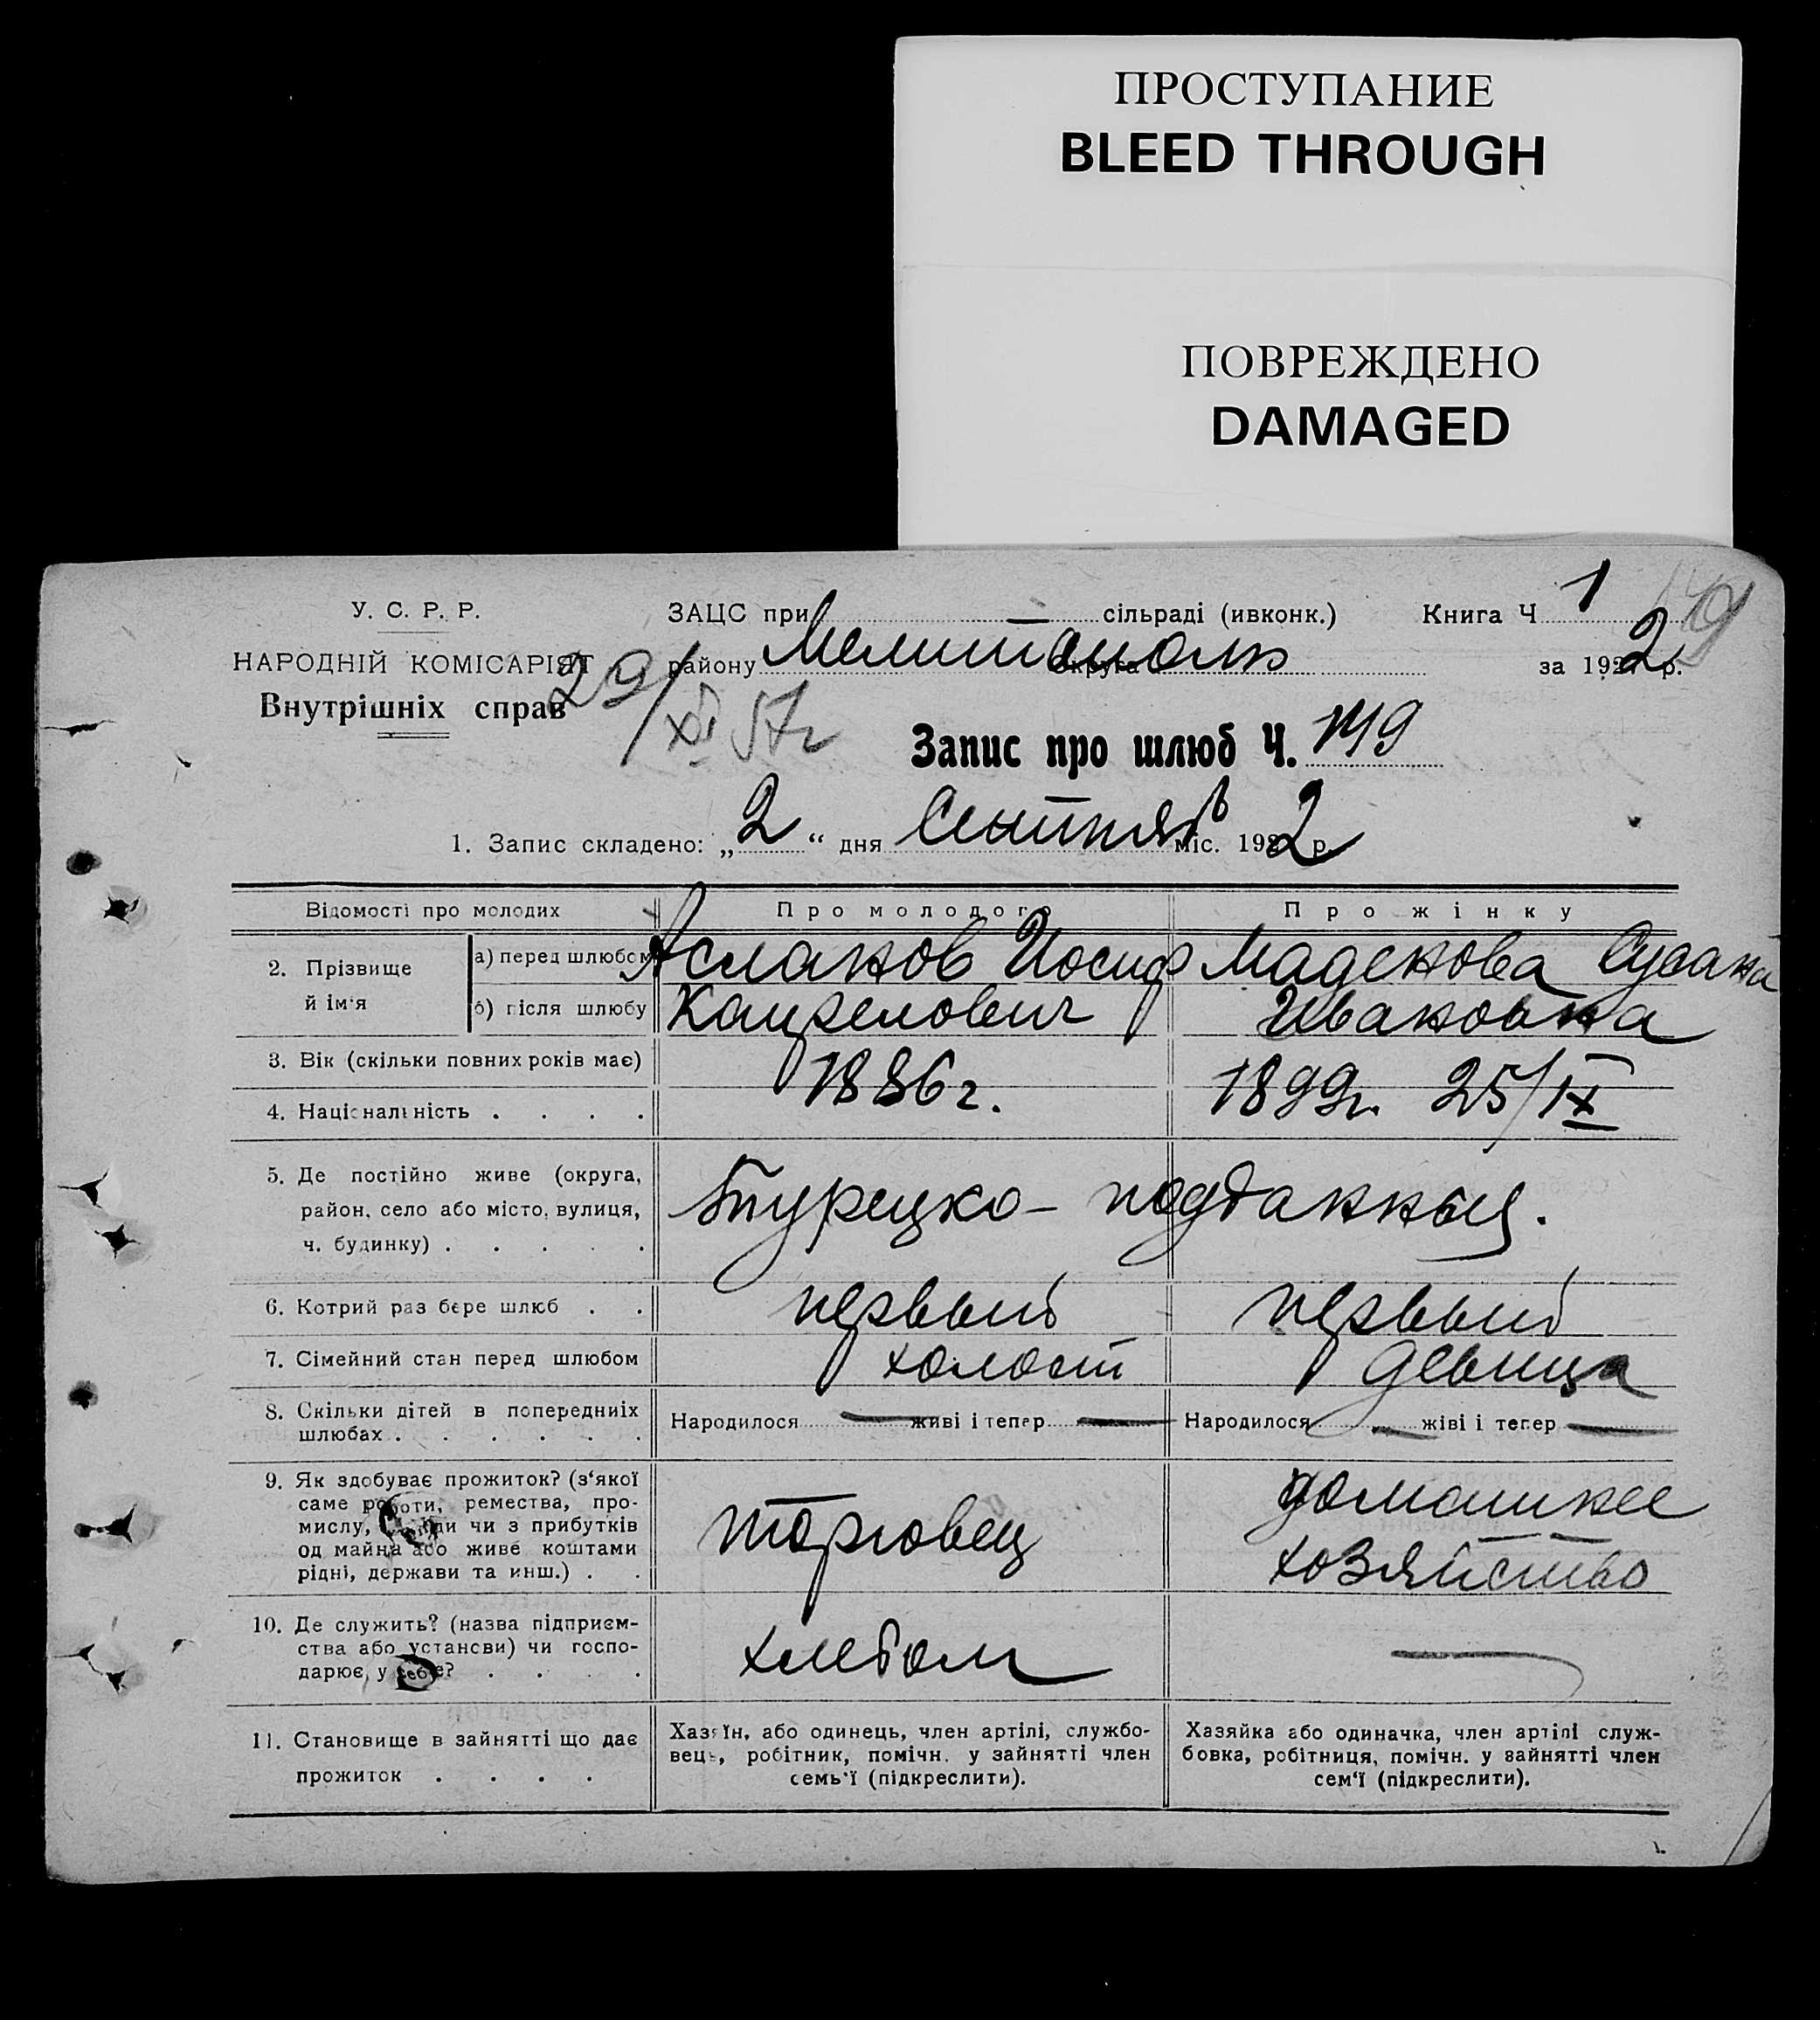 ПРОСТУПАНИЕ
BLEED THROUGH
ПОВРЕЖДЕНО
DAMAGED
У. С. Р. Р.
НАРОДНІЙ КОМІСАРІЯТ
Внутрішніх справ
29/XI 57г
ЗАЦС при сільраді (ивконк.) Книга Ч 1
району Мелитополь округа за 1922 р.
Запис про шлюб Ч. 149
1. Запис складено: „2“ дня Сентяб міс. 1922 р.
Відомості про молодих Про молодого Про жінку
2. Прізвище й ім'я а) перед шлюбом Асланов Иосиф Сусана
б) після шлюбу Ивановна
3. Вік (скільки повних років має) 1886 г. 1899 г. 25/IX
4. Національність . . . .
5. Де постійно живе (округа,
район, село або місто, вулиця,
ч. будинку) . . . . .
Турецко-подданный.
6. Котрий раз бере шлюб . . первый первый
7. Сімейний стан перед шлюбом холост девица
8. Скільки дітей в попередниіх
шлюбах . . . . . .
Народилося — живі і тепер — Народилося — жіві і тепер —
9. Як здобуває прожиток? (з'якої
саме роботи, ремества, про-
мислу, чи з прибутків
од майна або живе коштами
рідні, держави та инш.) . .
торговец
домашнее
хозяйство
10. Де служить? (назва підприєм-
ства або устансви) чи госпо-
дарює, у себе? . . . .
хлебом
—
11. Становище в зайнятті що дає
прожиток . . . .
Хазяїн, або одинець, член артілі, службо-
вець, робітник, помічн. у зайнятті член
семь'ї (підкреслити).
Хазяйка або одиначка, член артілі служ-
бовка, робітниця, помічн. у зайнятті член
сем'ї (підкреслити).